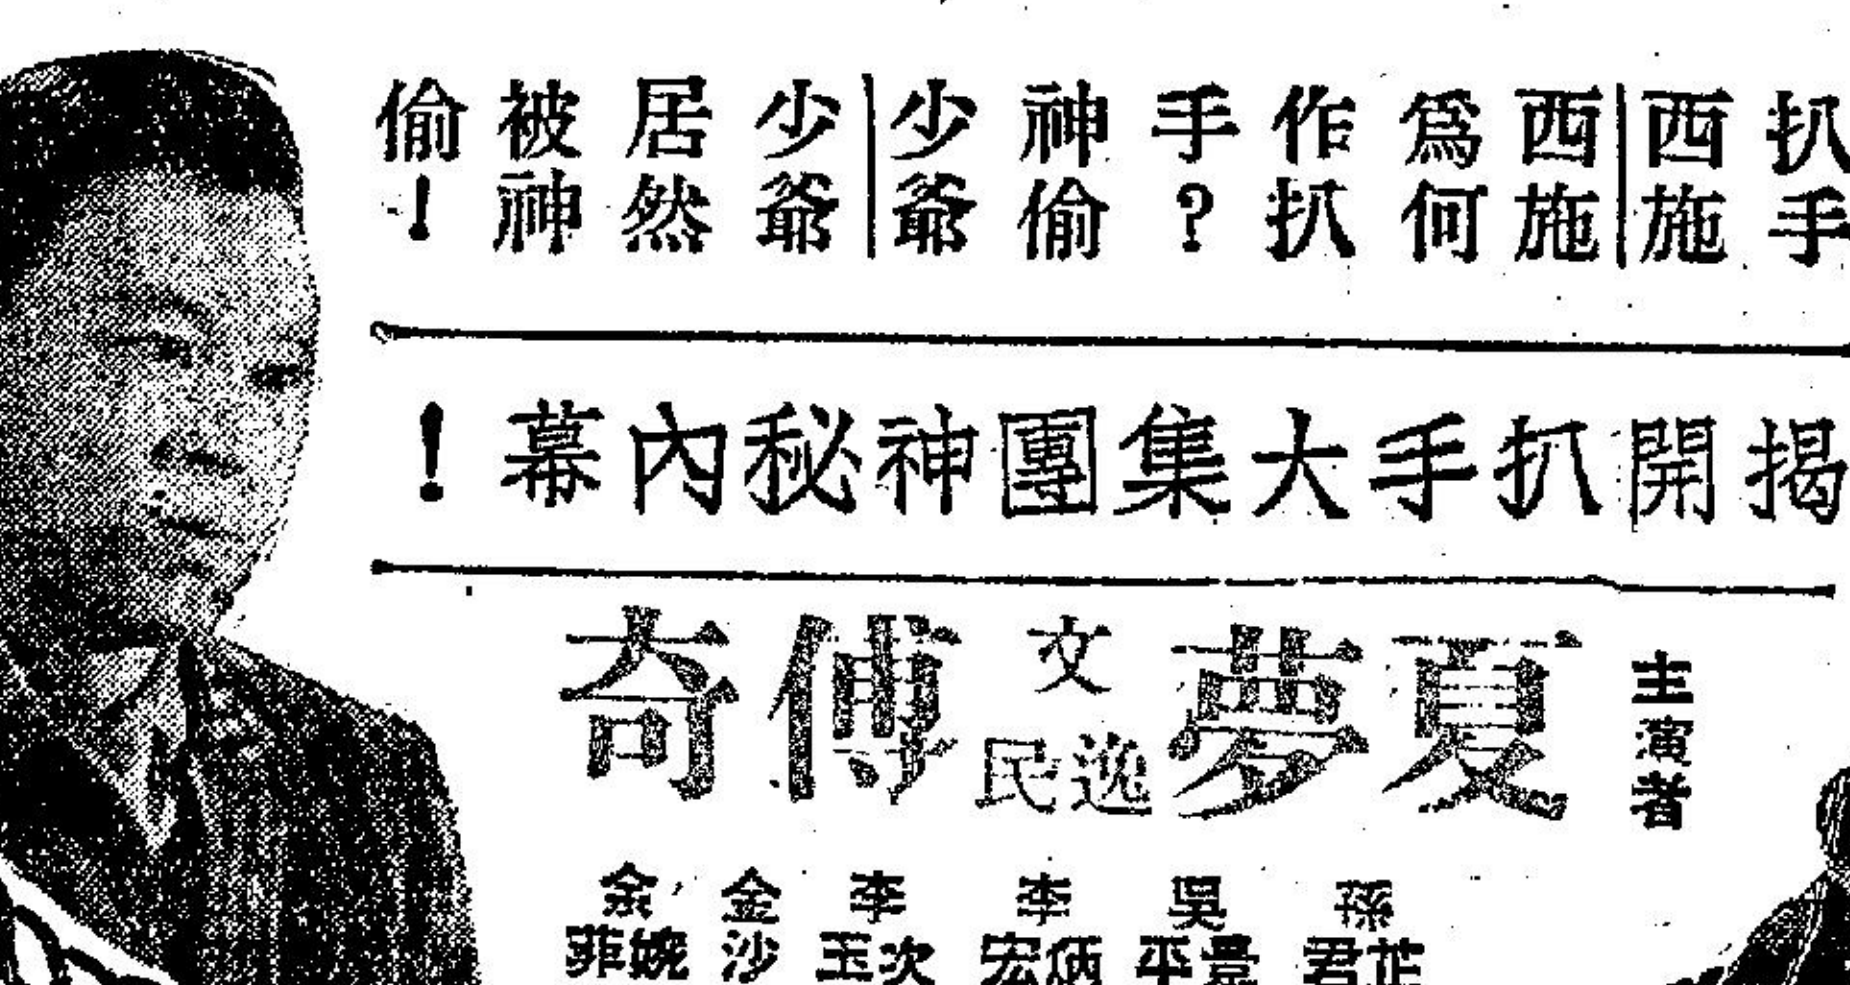 扒手
西施
西施
為何
作扒
手?
神偷
少爺
少爺
居然
被神
偷!
揭開扒手大集團神秘內幕!
主演者
夏夢
文逸民
傅奇
孫芷君
吳景平
李炳宏
李次玉
金沙
余婉菲